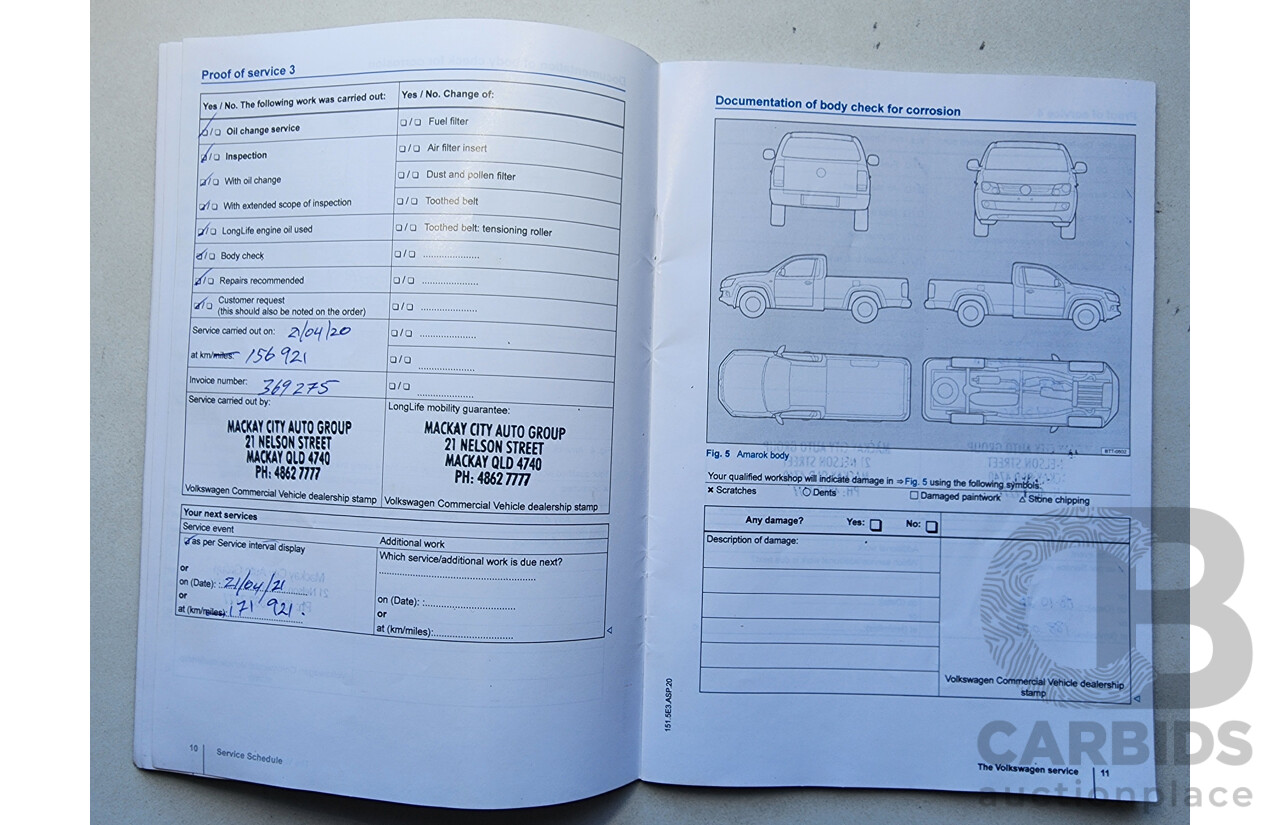 Proof of service 3
Yes / No. The following work was carried out:
Yes / No. Change of:
☑/☐ Oil change service
☐/☐ Fuel filter
☑/☐ Inspection
☐/☐ Air filter insert
☑/☐ With oil change
☐/☐ Dust and pollen filter
☑/☐ With extended scope of inspection
☐/☐ Toothed belt
☑/☐ LongLife engine oil used
☐/☐ Toothed belt: tensioning roller
☑/☐ Body check
☐/☐ ....................
☑/☐ Repairs recommended
☐/☐ ....................
☑/☐ Customer request
(this should also be noted on the order)
☐/☐ ....................
Service carried out on: 21/04/20
☐/☐ ....................
at km/miles: 156 921
☐/☐ ....................
Invoice number: 369275
☐/☐ ....................
Service carried out by:
MACKAY CITY AUTO GROUP
21 NELSON STREET
MACKAY QLD 4740
PH: 4862 7777
Volkswagen Commercial Vehicle dealership stamp
LongLife mobility guarantee:
MACKAY CITY AUTO GROUP
21 NELSON STREET
MACKAY QLD 4740
PH: 4862 7777
Volkswagen Commercial Vehicle dealership stamp
Your next services
Service event
☑ as per Service interval display
or
on (Date): 21/04/21
or
at (km/miles): 171 921.
Additional work
Which service/additional work is due next?
on (Date): :....................
or
at (km/miles):....................
10 Service Schedule
Documentation of body check for corrosion
BTT-0602
Fig. 5 Amarok body
Your qualified workshop will indicate damage in ⇒ Fig. 5 using the following symbols:
× Scratches ○ Dents □ Damaged paintwork △ Stone chipping
Any damage? Yes: ☐ No: ☐
Description of damage:
Volkswagen Commercial Vehicle dealership
stamp
151.5E3.ASP.20
The Volkswagen service 11
CB
CARBIDS
auctionplace